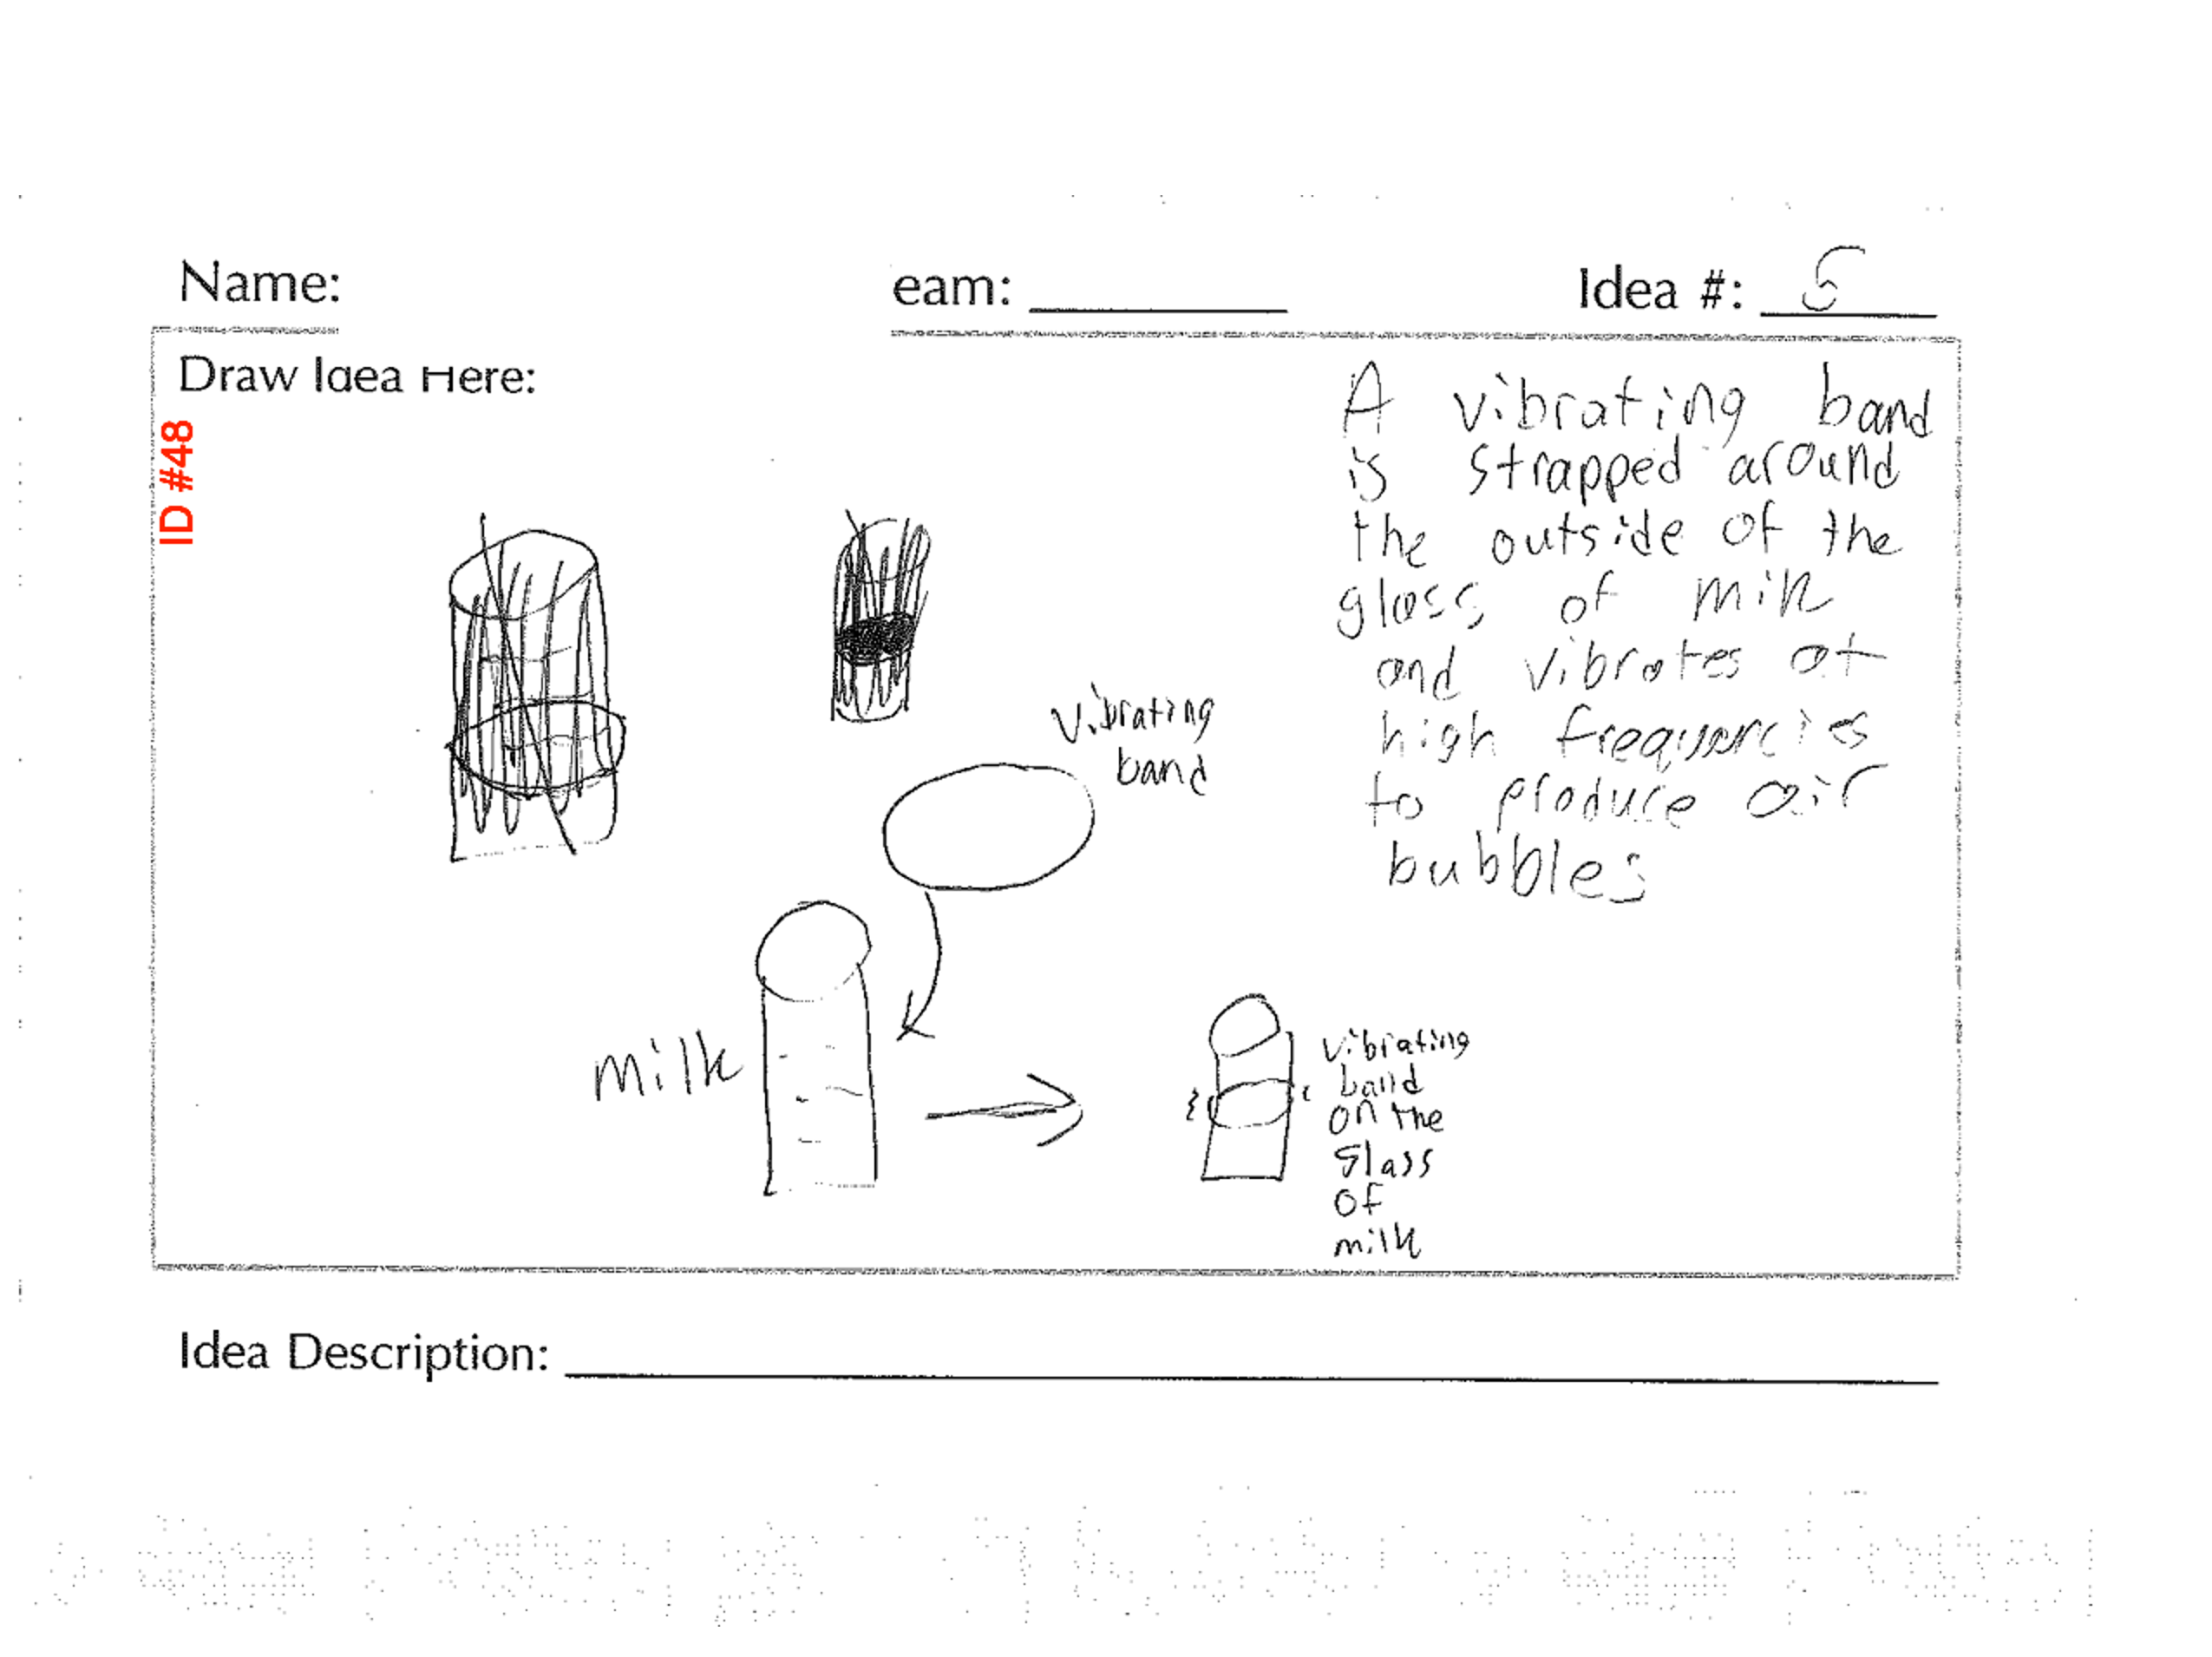 Name:
eam:
Idea #: 5
Draw Idea Here:
ID #48
A vibrating band
is strapped around
the outside of the
glass of milk
and vibrates at
high frequencies
to produce air
bubbles
vibrating
band
milk
vibrating
band
on the
glass
of
milk
Idea Description: